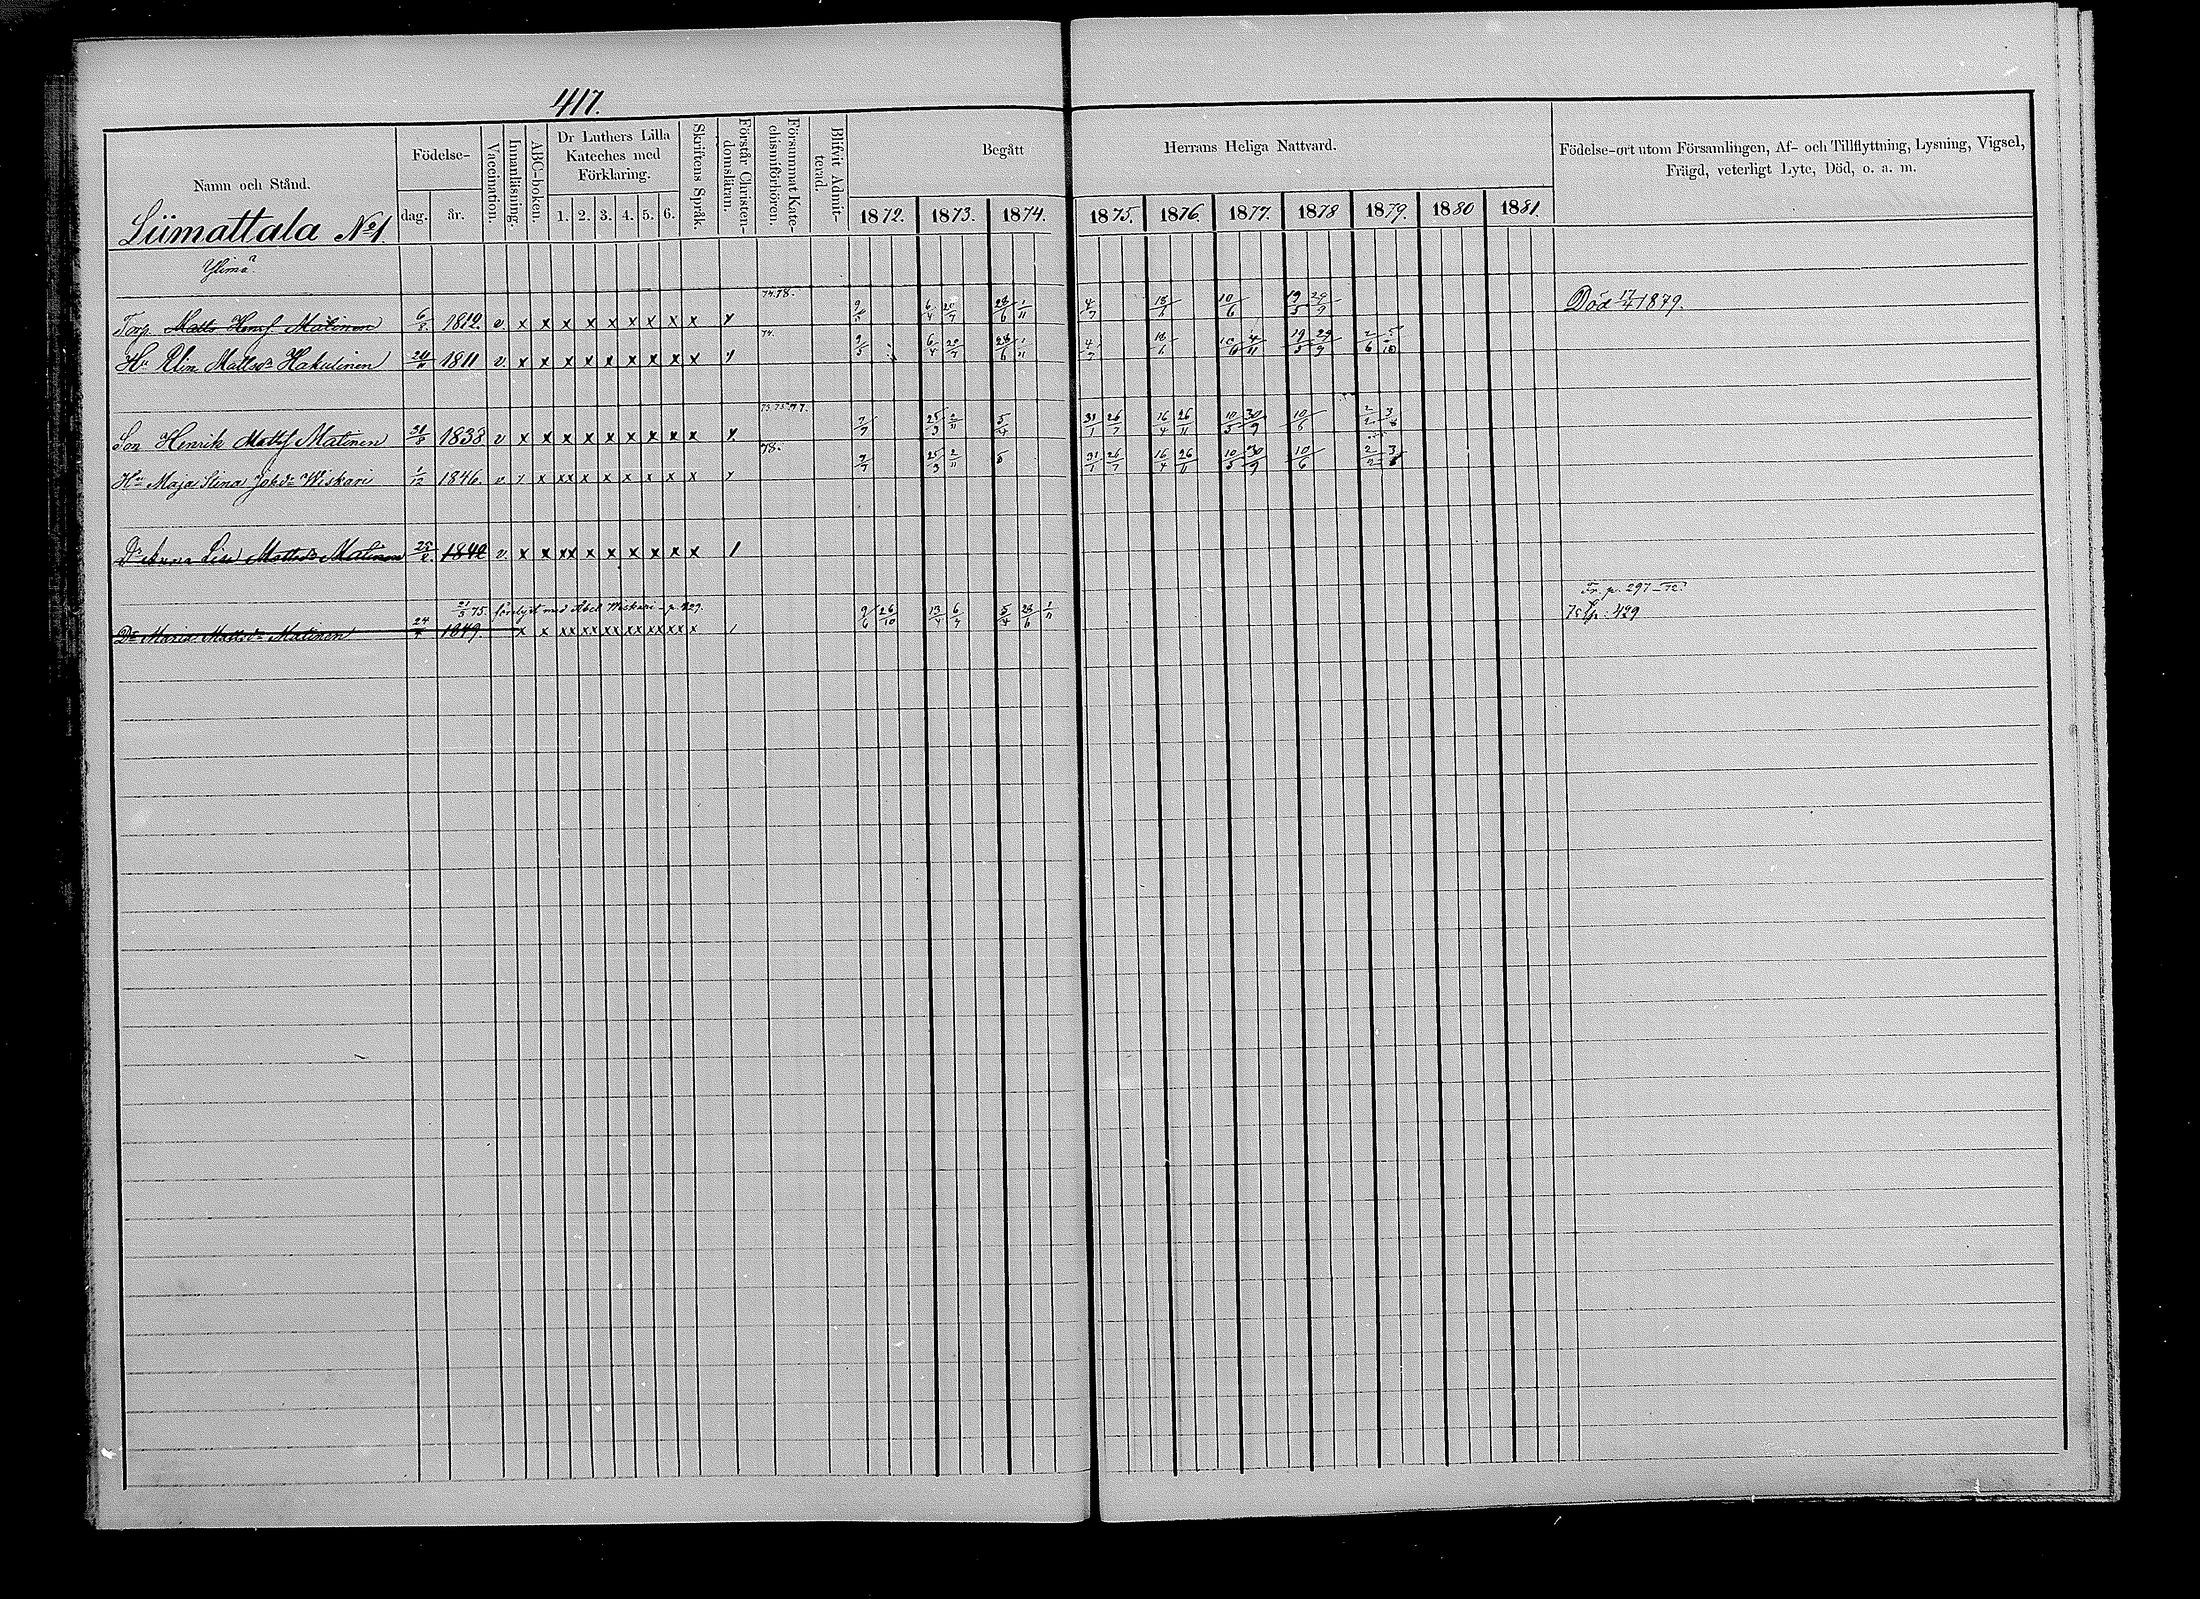 417.
Namn och Stånd.
Födelse-
dag. år.
Vaccination.
Innanläsning.
ABC-boken.
Dr Luthers Lilla
Kateches med
Förklaring.
1. 2. 3. 4. 5. 6.
Skriftens Språk.
Förstår Christen-
domsläran.
Försummat Kate-
chismiförhören.
Blifvit Admit-
terad.
Begått Herrans Heliga Nattvard.
1872. 1873. 1874. 1875. 1876. 1877. 1878 1879. 1880 1881.
Födelse-ort utom Församlingen, Af- och Tillflyttning, Lysning, Vigsel,
Frägd, veterligt Lyte, Död, o. a. m.
Liimattala No 1.
74.78.
Torp. Matts Henrs. Matinen 6/8 1812. v. x x x x x x x x x 9/5 6/4 20/7 28/6 1/11 4/7 18/6 10/6 19/5 29/9 Död 17/4 1879.
74.
Hu Elin Mattsdr Hakulinen 1811 v. x x x x x x x x x 9/5 6/4 20/7 28/6 1/11 4/7 18/6 10/6 4/11 19/5 29/9 2/6 5/10
73.75.77.
Son Henrik Matts. Matinen 31/8 1838 v x x x x x x x x x 7/7 25/3 2/11 5/4 31/1 26/7 16/4 26/11 10/5 30/9 10/6 2/2 3/8
78.
Hu Maja Stina Johdr Wiskari 1/12 1846. v x xx x x x x x x 7/7 25/3 2/11 5 31/1 26/7 16/4 26/11 10/5 30/9 10/6 2/2 3/8
Dr Anna Lisa Mattsdr Matinen 25/8 1842 v. x x xx x x x x x x
Fr. p. 297 - 72.
21/3 75. förelyst med Abel Wiskari - p. 429.
Dr Maria Mattsdr Matinen 24 1849 x x xx xx xx xx xx xx x 9/6 26/10 13/4 6/7 5/4 28/6 1/11 75 Lp: 429